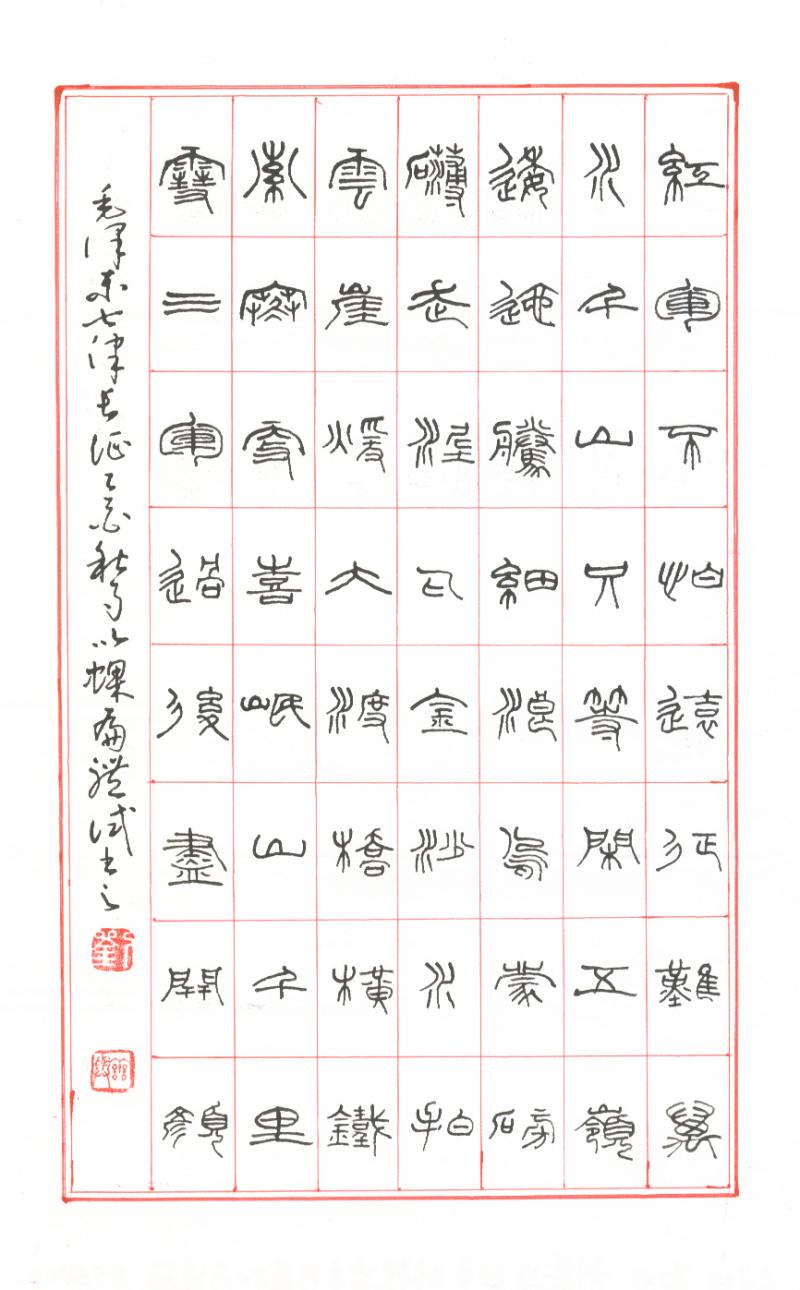 紅軍不怕遠征難萬
水千山只等閑五嶺
逶迤騰細浪烏蒙磅
礴走泥丸金沙水拍
雲崖煖大渡橋橫鐵
索寒更喜岷山千里
雪三軍過後盡開顏
毛澤東七律長征秋月以螺扁體試書之
劉